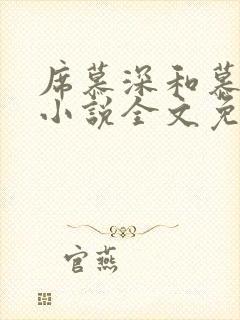 席慕深和慕
小说全文免
官燕